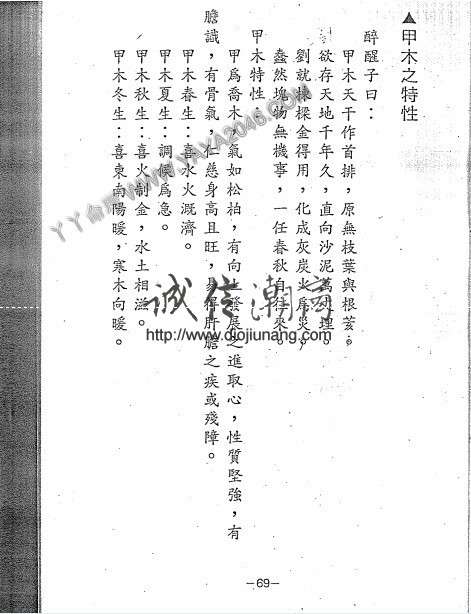 ▲甲木之特性
醉醒子曰：
甲木天干作首排，原無枝葉與根荄，
欲存天地千年久，直向沙泥萬丈埋。
劉就棟樑金得用，化成灰炭火爲災，
蠢然塊物無機事，一任春秋自往來。
甲木特性：
甲爲喬木，氣如松柏，有向上發展之進取心，性質堅強，有
膽識，有骨氣，仁慈身高且旺，易得肝膽之疾或殘障。
甲木春生：喜水火溉濟。
甲木夏生：調候爲急。
甲木秋生：喜火制金，水土相滋。
甲木冬生：喜東南陽暖，寒木向暖。
—69—
WWW.YAYA2046.COM
诚信潮商
http://www.diojiunang.com